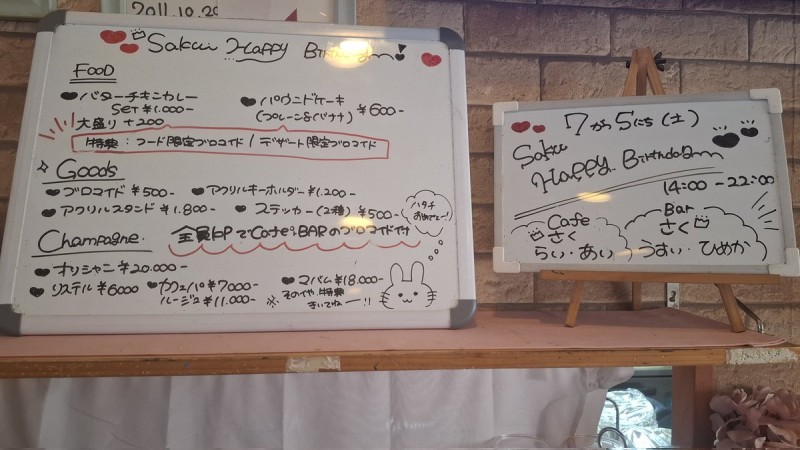 2011.10.20
Saku Happy Birthday!
FOOD
バターチキンカレー
Set ¥1.000-
大盛り +200
パウンドケーキ
(プレーン&バナナ) ¥600-
特典：フード限定ブロマイド / デザート限定ブロマイド
Goods
ブロマイド ¥500-
アクリルキーホルダー ¥1.200-
アクリルスタンド ¥1.800-
ステッカー(2種) ¥500-
ハタチ
おめでとー!
Champagne.
全員にPでCafe&BARのブロマイド付
オリシャン ¥20.000-
リステル ¥6000
カフェパ ¥7000-
ルージュ ¥11.000-
コパム ¥18.000-
※その他特典
きいてねー!!
7から5にち(土)
Saku
Happy Birthday
14:00-22:00
Cafe
さく
らい・あい
Bar
さく
うすい・ひめか